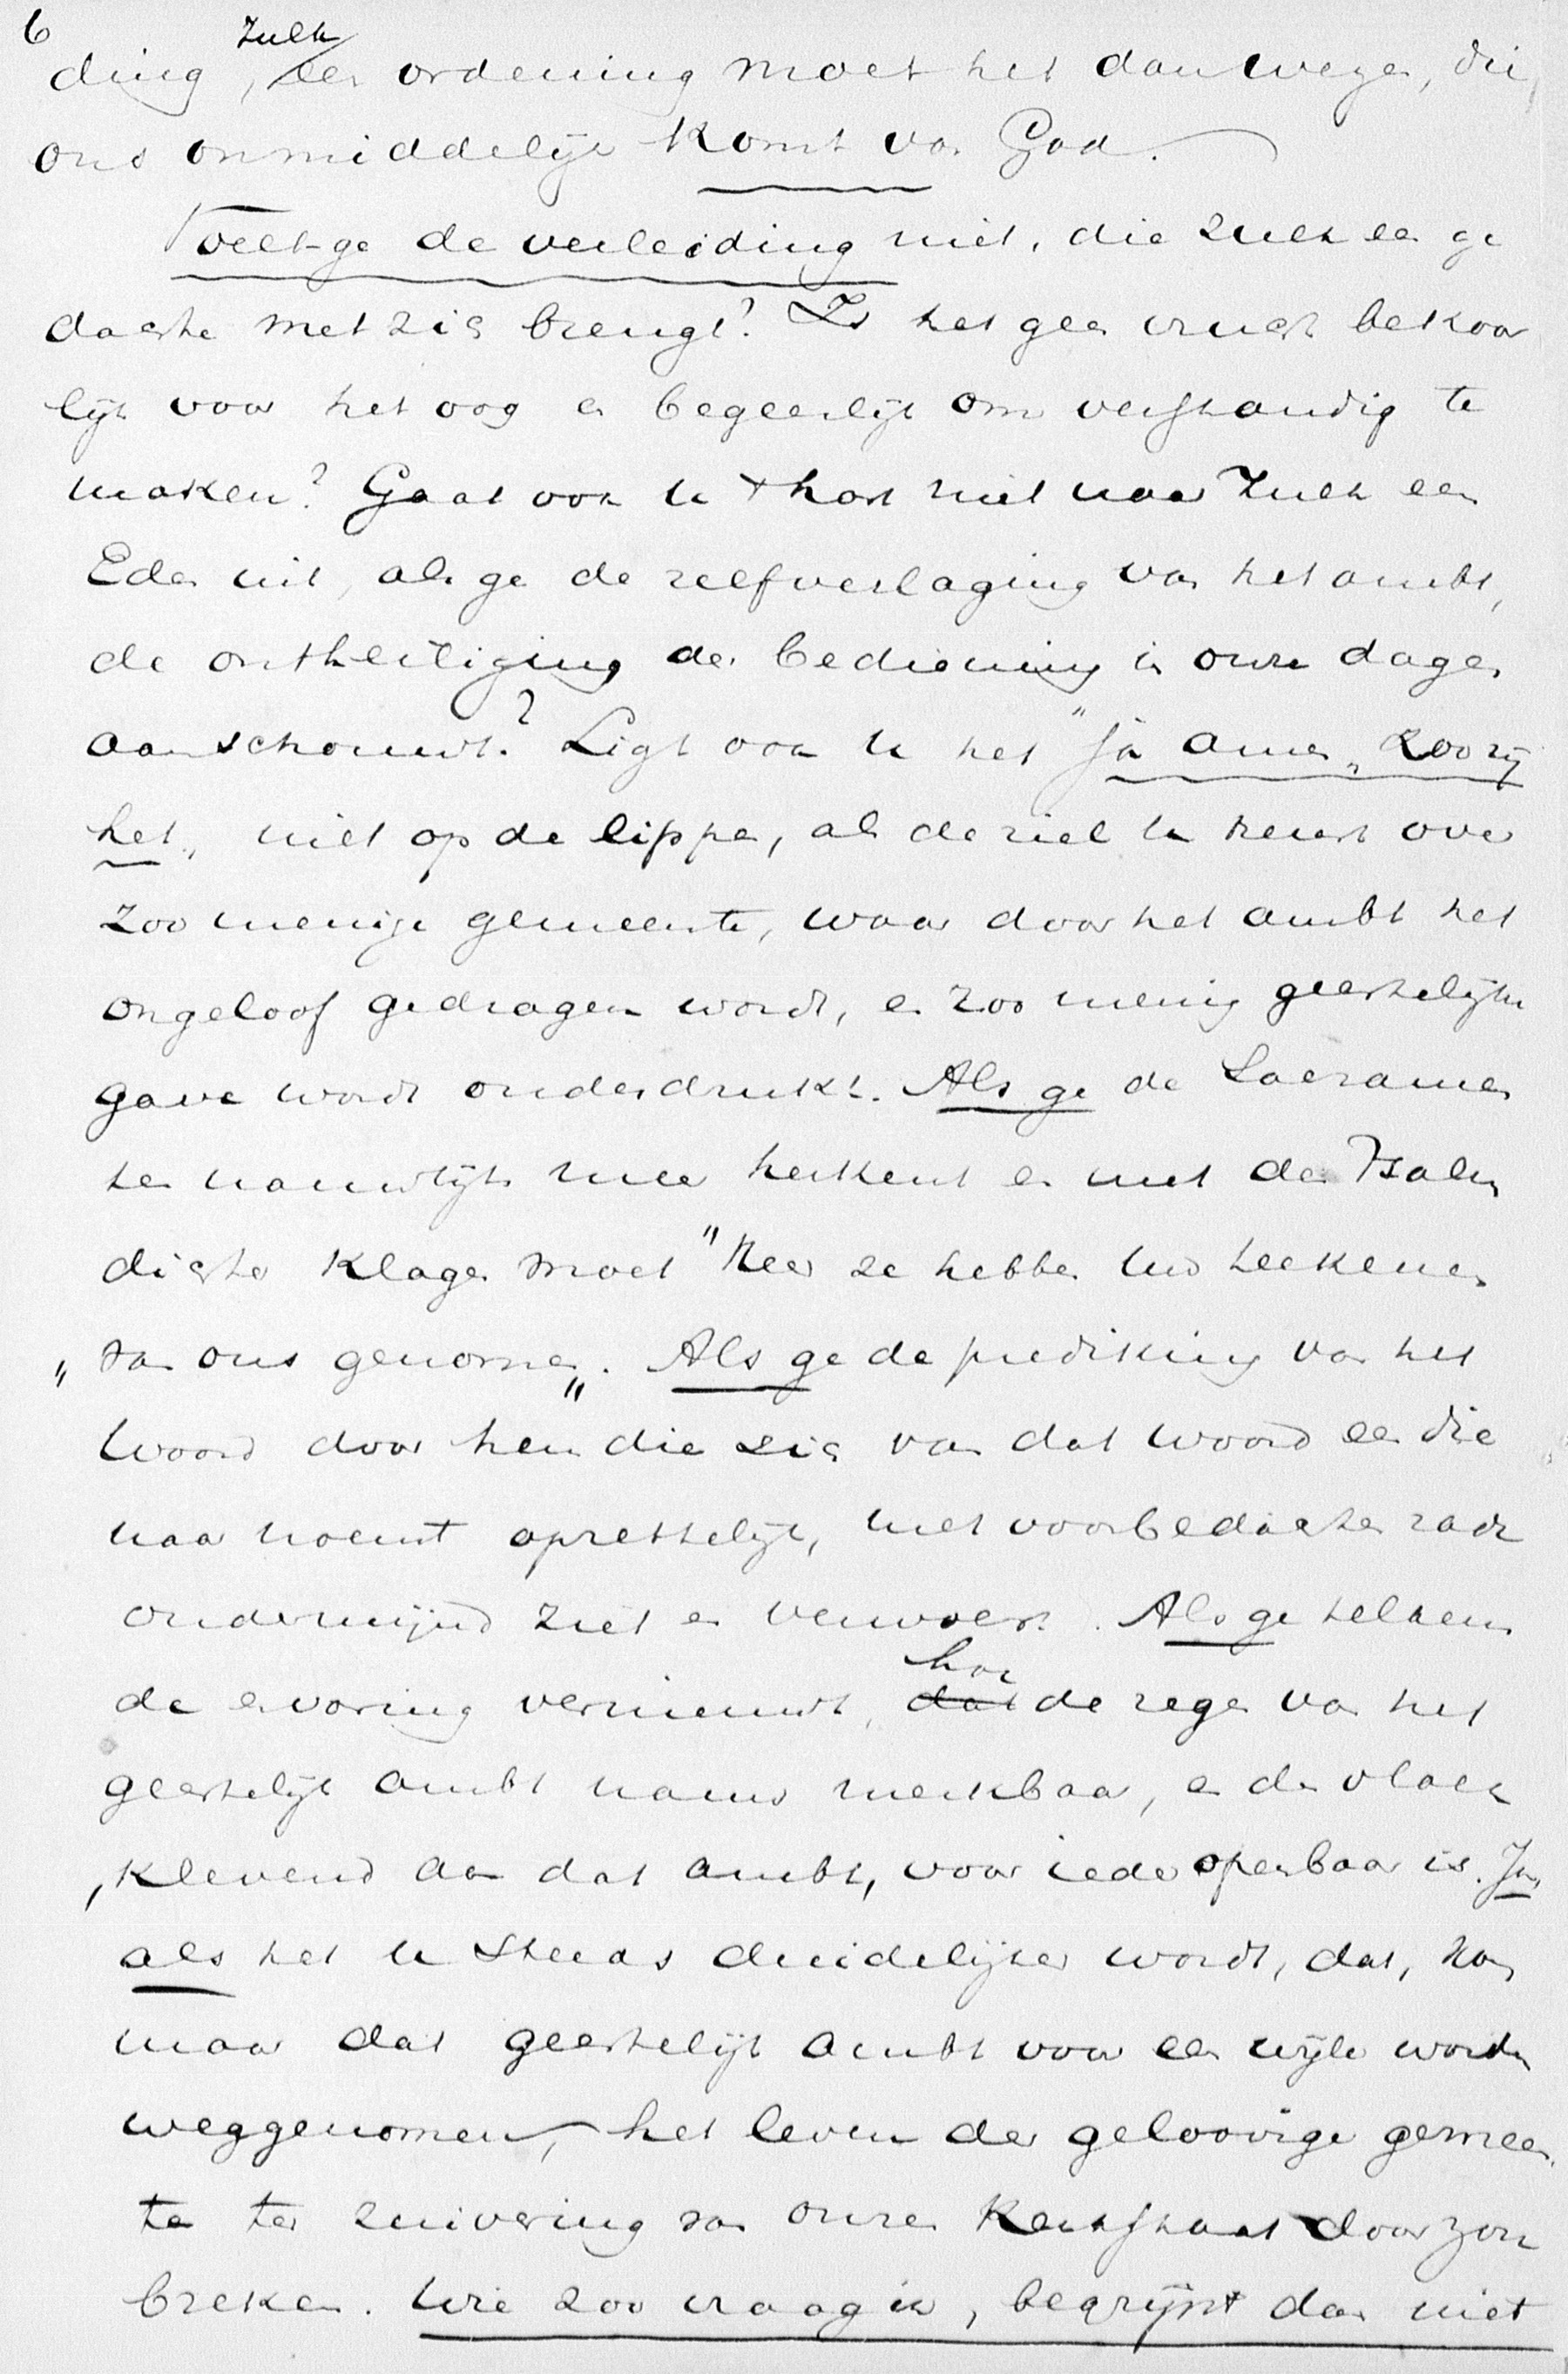 6
zulk
ding, een ordening moet het dan wezen, die
ons onmiddelijk komt van God.
Voelt ge de verleiding niet, die zulk een ge
dachte met zich brengt? Is het geen vrucht bekoor
lijk voor het oog en begeerlijk om verstandig te
maken? Gaat ook u 't hart niet naar zulk een
Eden uit, als ge de zelfverlaging van het ambt,
de ontheiliging der bediening in onze dagen
aanschouwt? Ligt ook u het "ja amen„ zoo zij
het„ niet op de lippen, als de ziel u treurt over
zoo menige gemeente, waar door het ambt het
ongeloof gedragen wordt, en zoo menig geestelijke
gave wordt onderdrukt. Als ge de Sacramen
ten nauwlijks meer herkent en met den Psalm
dichter klagen moet "Heer ze hebben uw teekenen
„ van ons genomen„. Als ge de prediking van het
Woord door hen die zich van dat Woord een die
naar noemt opzettelijk, met voorbedachten rade
ondermijnd ziet en verwoest. Als ge telkens
de ervaring vernieuwt, hoe
dat de zegen van het
geestelijk ambt nauw merkbaar, en de vloek
, klevend aan dat ambt, voor ieder openbaar is. Ja,
als het u steeds duidelijker wordt, dat, kon
maar dat geestelijk ambt voor een wijle worden
weggenomen, het leven der geloovige gemeen
te ter zuivering van onze Kerkstaat door zou
breken. Wie zoo vraag ik, begrijpt dan niet